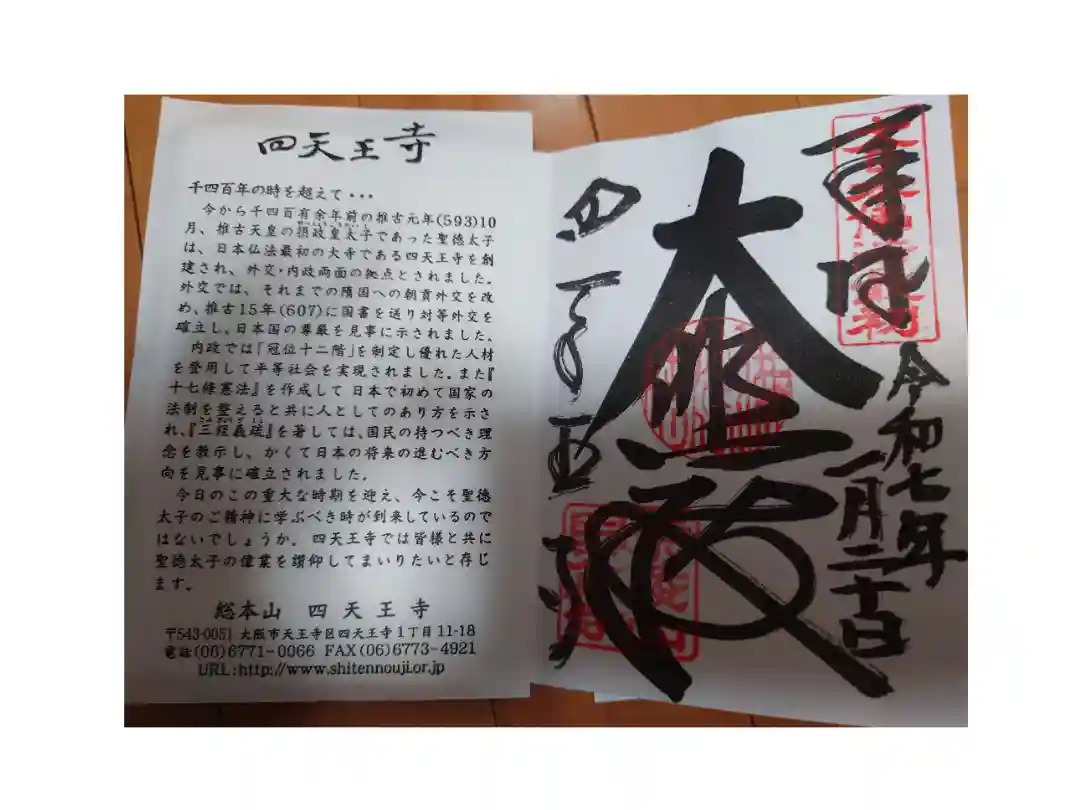 四天王寺
千四百年の時を超えて・・・
今から千四百有余年前の推古元年(593)10
月、推古天皇の摂政皇太子であった聖徳太子
は、日本仏法最初の大寺である四天王寺を創
建され、外交・内政両面の拠点とされました。
外交では、それまでの隋国への朝貢外交を改
め、推古15年(607)に国書を送り対等外交を
確立し、日本国の尊厳を見事に示されました。
内政では「冠位十二階」を制定し優れた人材
を登用して平等社会を実現されました。また『
十七條憲法』を作成して日本で初めて国家の
法制を整えると共に人としてのあり方を示さ
れ、『三経義疏』を著しては、国民の持つべき理
念を教示し、かくて日本の将来の進むべき方
向を見事に確立されました。
今日のこの重大な時期を迎え、今こそ聖徳
太子のご精神に学ぶべき時が到来しているので
はないでしょうか。四天王寺では皆様と共に
聖徳太子の偉業を讃仰してまいりたいと存じ
ます。
総本山 四天王寺
〒543-0051 大阪市天王寺区四天王寺1丁目11-18
電話(06)6771-0066 FAX(06)6773-4921
URL:http://www.shitennouji.or.jp
奉拝
令和七年
一月二十日
大悲殿
四天王寺